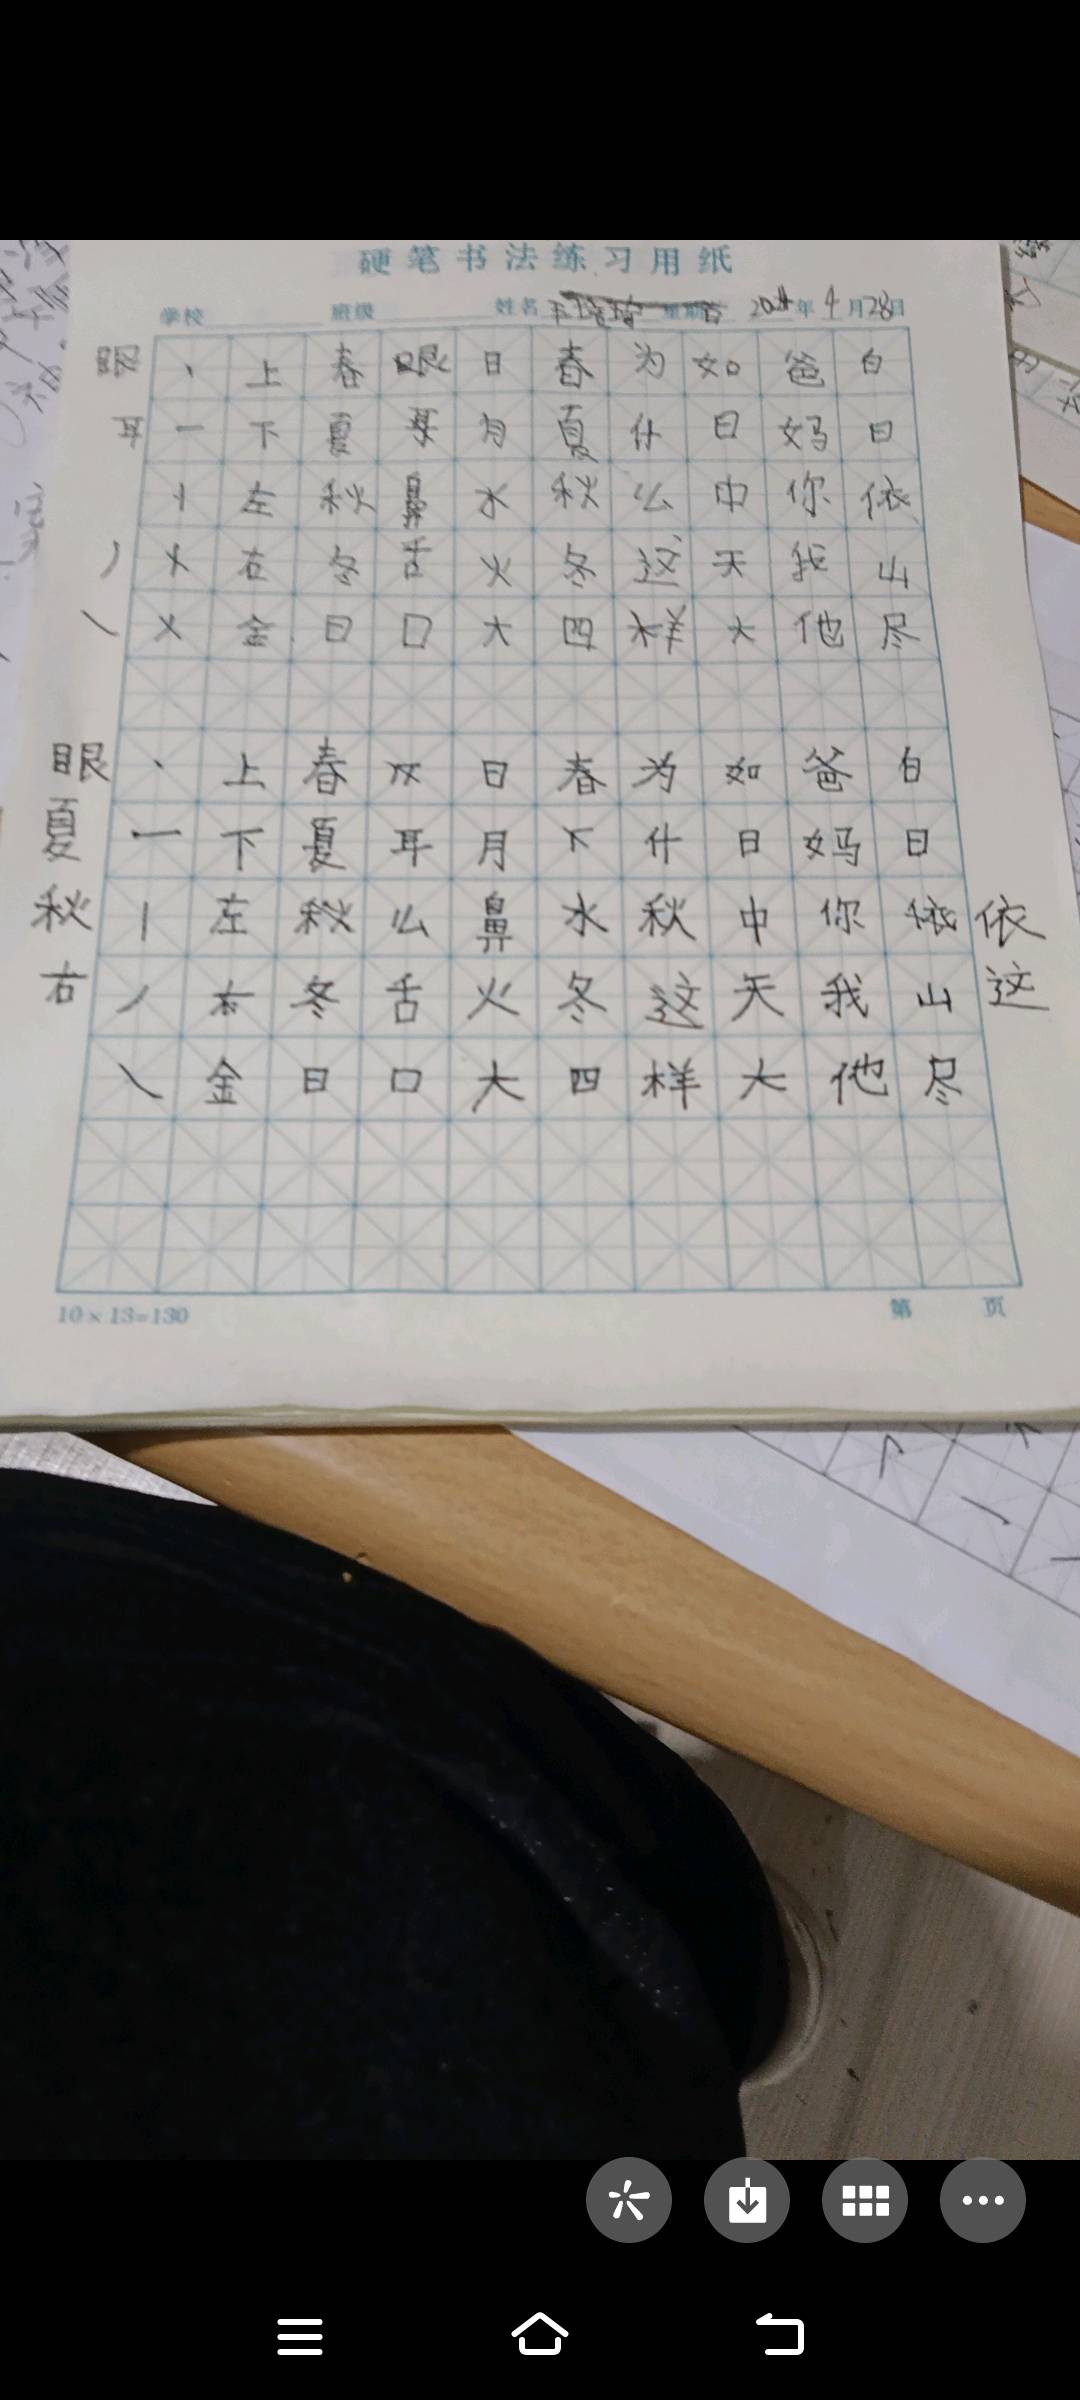 硬笔书法练习用纸
学校 班级 姓名 年4月28日
眼 丶 上 春 眼 日 春 为 如 爸 白
耳 一 下 夏 耳 月 夏 什 日 妈 日
丨 左 秋 鼻 水 秋 么 中 你 依
丿 右 冬 舌 火 冬 这 天 我 山
㇏ 金 日 口 大 四 样 大 他 尽
眼 丶 上 春 日 春 为 如 爸 白
夏 一 下 夏 耳 月 下 什 日 妈 日
秋 丨 左 秋 么 鼻 水 秋 中 你 依 依
右 丿 右 冬 舌 火 冬 这 天 我 山 这
㇏ 金 日 口 大 四 样 大 他 尽
10×13=130 第 页